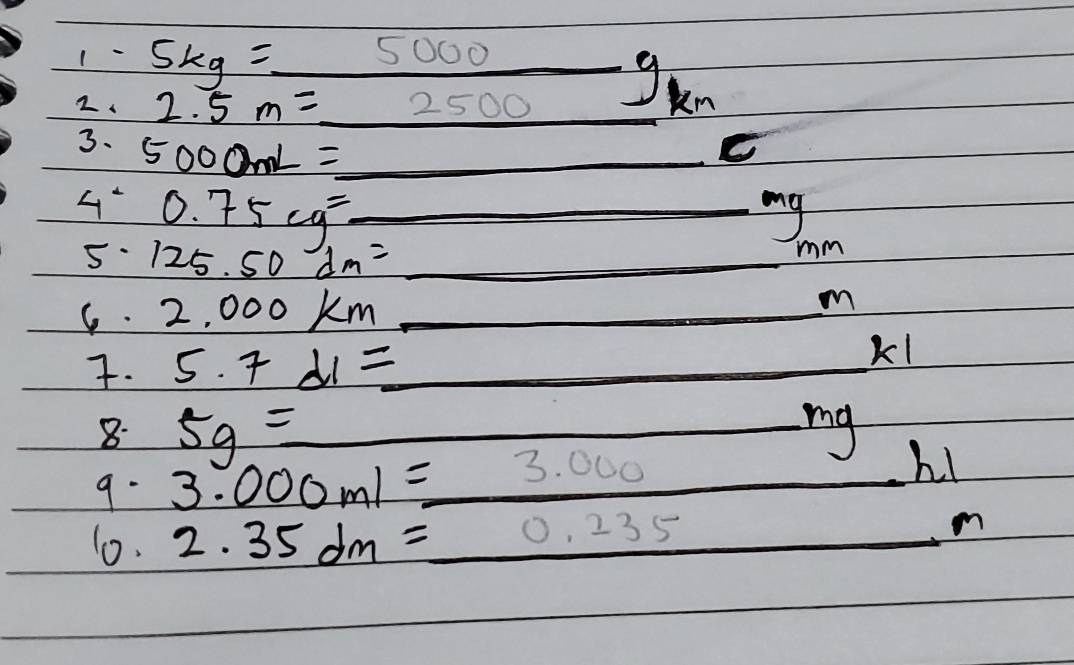 1. 5kg = 5000 g
2. 2.5 m = 2500 km
3. 5000mL = C
4. 0.75 cg = mg
5. 125.50 dm = mm
6. 2.000 km m
7. 5.7 dl = kl
8. 5g = mg
9. 3.000ml = 3.000 hl
10. 2.35 dm = 0.235 m